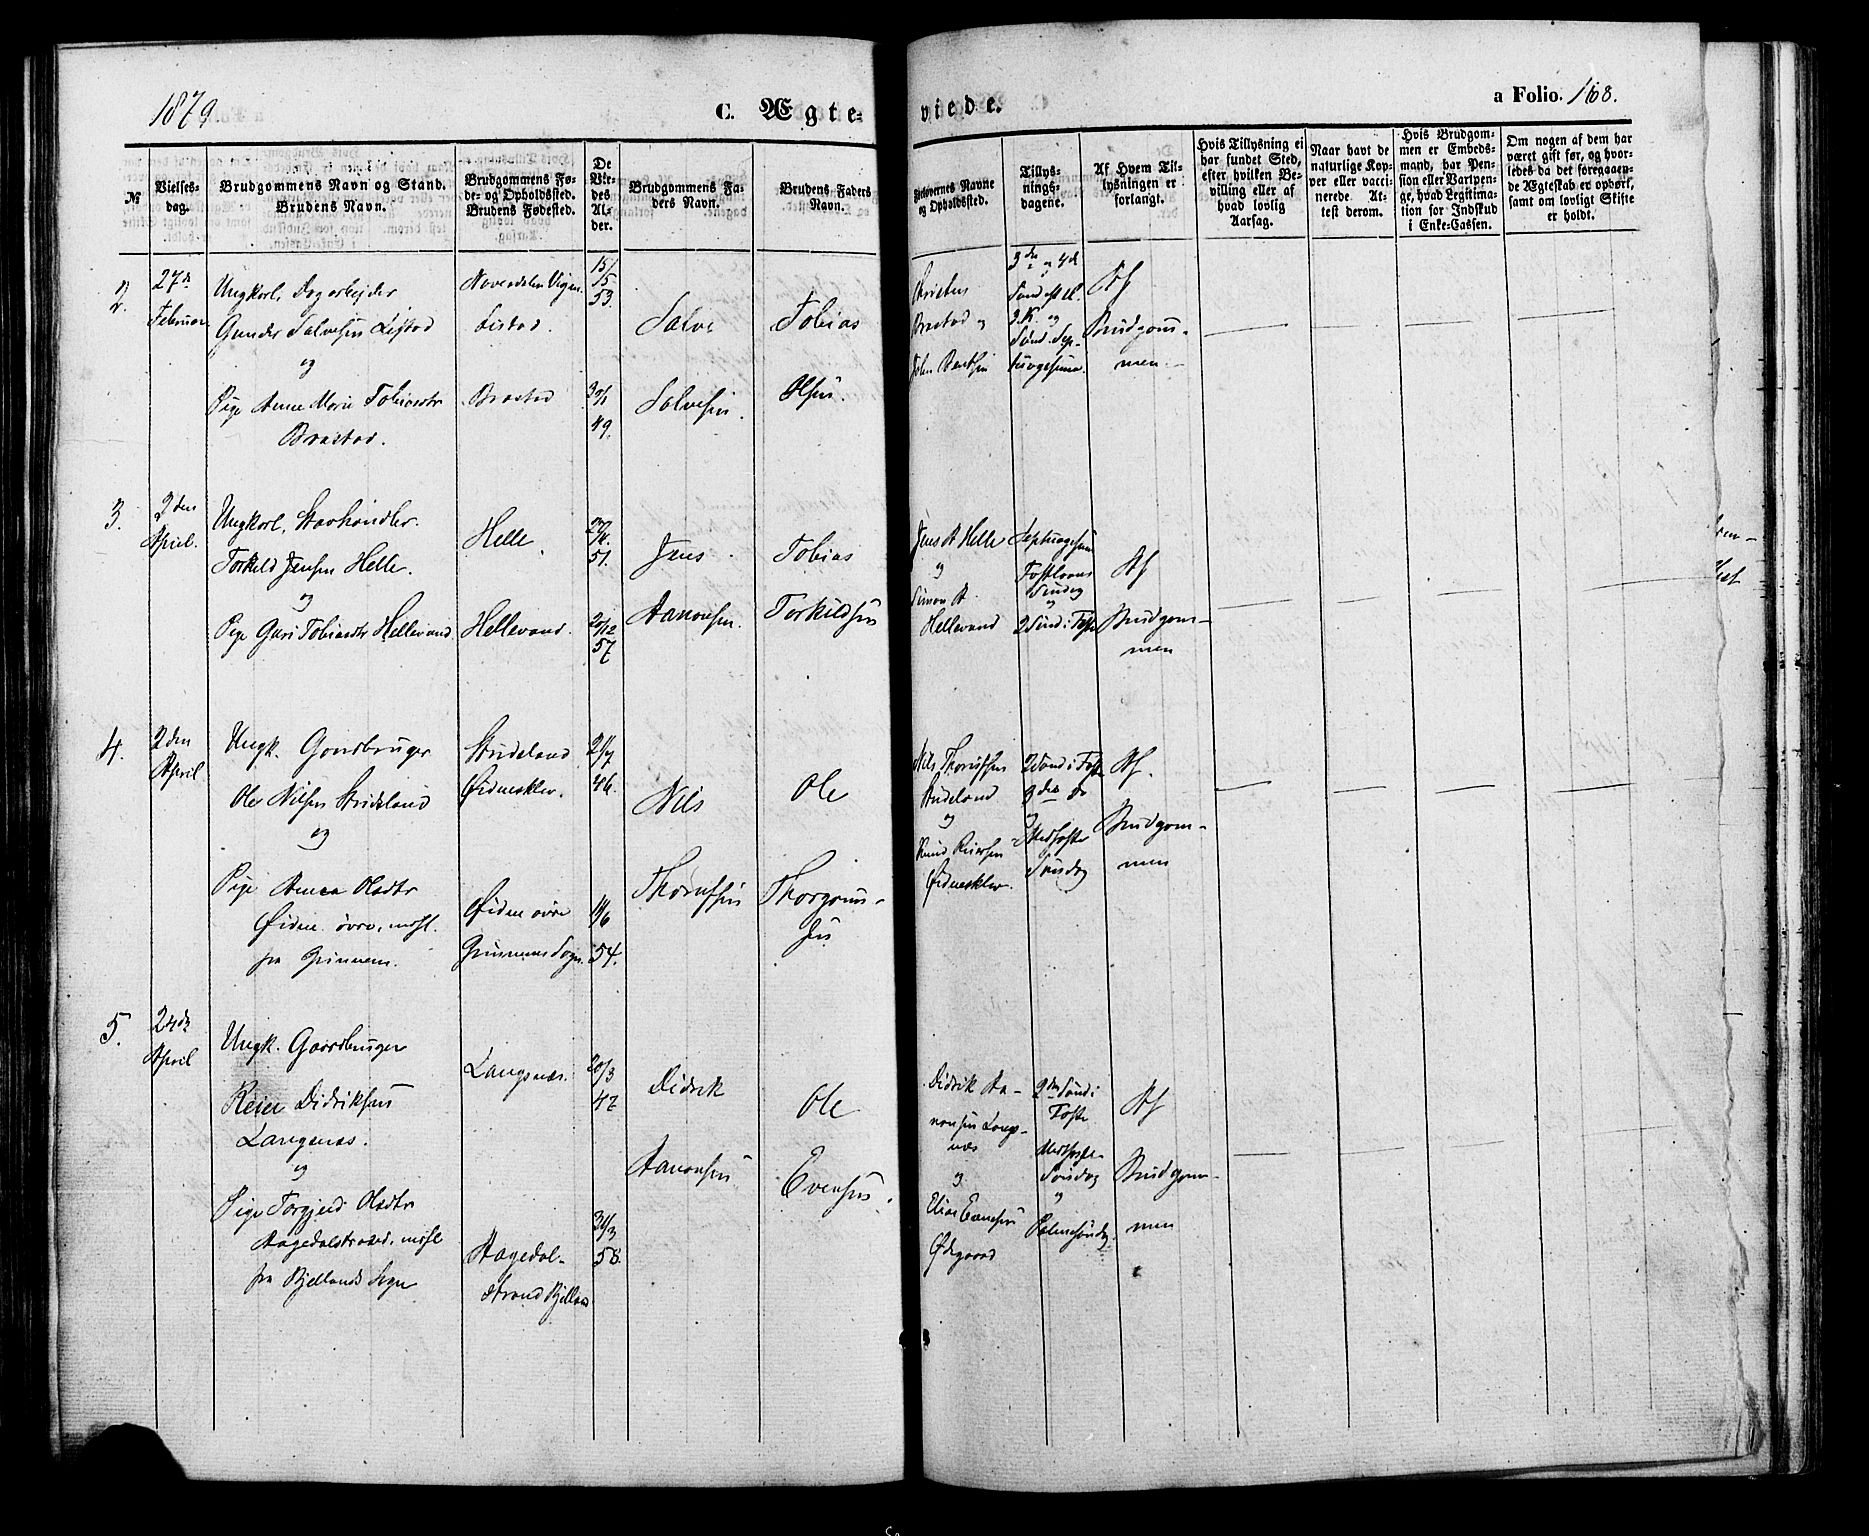 1879
C. Ægte-
viede.
a Folio. 168.
№
Vielses-
dag.
Brudgommens Navn og Stand.
Brudens Navn.
Brudgommens Fø-
de- og Opholdssted.
Brudens Fødested.
De
Vie-
des
Al-
der.
Brudgommens Fa-
ders Navn.
Brudens Faders
Navn.
Forlovernes Navne
og Opholdssted.
Tillys-
nings-
dagene.
Af Hvem Til-
lysningen er
forlangt.
Hvis Tillysning ei
har fundet Sted,
efter hvilken Be-
villing eller af
hvad lovlig
Aarsag.
Naar havt de
naturlige Kop-
per eller vacci-
nerede At-
test derom.
Hvis Brudgom-
men er Embeds-
mand, har Pen-
sion eller Vartpen-
ge, hvad Legitima-
tion for Indskud
i Enke-Cassen.
Om nogen af dem har
været gift før, og hvor-
ledes da det foregaaen-
de Ægteskab er ophørt,
samt om lovligt Skifte
er holdt.
2.
27de
Februar
Ungkarl, Dagarbejder
Gunder Salvesen Listad
og
Pige Anne Marie Tobiasdtr
Brastad.
Listad.
Brastad
15/5
53.
49.
Salve
Salvesen.
Tobias
Olsen.
Christen
Brastad og
John Bentsen
3die og 4de
og
Af
Brudgom-
men.
3.
2den
April.
Ungkarl, Stavhandler.
Torkild Jensen Helle.
og
Pige Guri Tobiasdtr Hellevand
Helle.
Hellevand.
51.
20/12
57
Jens
Aanonsen.
Tobias
Torkildsen
Jens A Helle
og
Simon A.
Hellevand
Septuagesima
Fastelavns
Søndag
og
2 Sønd. i Faste
Af
Brudgom-
men
4.
2den
April
Ungk. Gaardbruger
Ole Nilsen Strideland
og
Pige Anna Olsdtr
Øidne øvre, indfl.
fra Grinnem.
Strideland
Øidnesklev.
Øidne øvre
Grinnems Sogn.
21/7
46.
11/6
54.
Nils
Thorufsen
Ole
Thorgrims-
sen
Nils Thorufsen
Strideland
og
Knud Reiersen
Øidnesklev.
2 Sønd i Faste
3die do
og
Midfaste
Søndag
Af.
Brudgom-
men
5.
24de
April
Ungk. Gaardbruger
Reier Didriksen
Langenæs.
og
Pige Torgjerd Olsdtr
Aagedalstrand, indfl
fra Bjellands Sogn
Langenæs.
Aagedal-
strand Bjelland
20/3
47
31/3
58.
Didrik
Aanonsen
Ole
Evensen.
Didrik Aa-
nonsen Lange-
næs
og
Elias Evensen
Ødegaard
3die Sønd i
Faste
Midfaste-
Søndag
og
Palmesøndag.
Af
Brudgom-
men